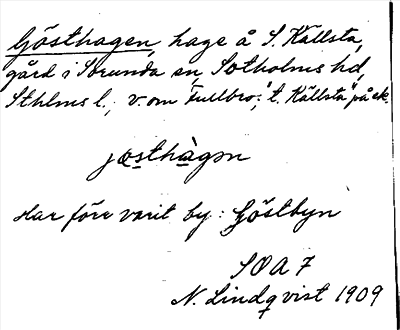 Gösthagen, hage å S. Källsta,
gård i Sorunda sn, Sotholms hd,
Sthlms l., v. om Fullbro; "t. Källsta" på ek.
jœsthàgən
Har förr varit by: Göstbyn
SOA 7
N. Lindqvist 1909